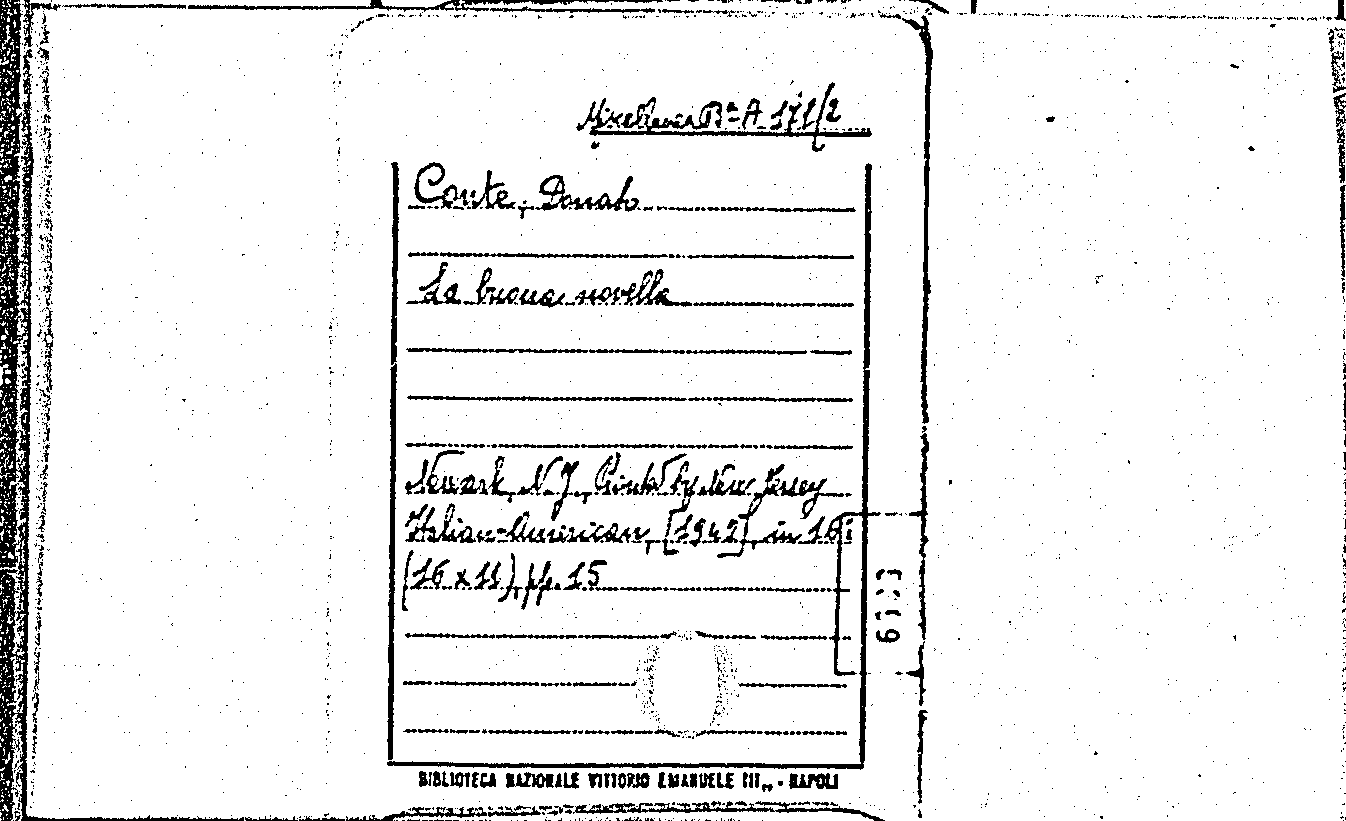 Miscellanea Bª A 171/2
Conte, Donato
La buona novella
Newark, N.J., Printed by New Jersey
Italian-American, [1942], in 16º
(16 x 11), pp. 15
BIBLIOTECA NAZIONALE VITTORIO EMANUELE III„ - NAPOLI